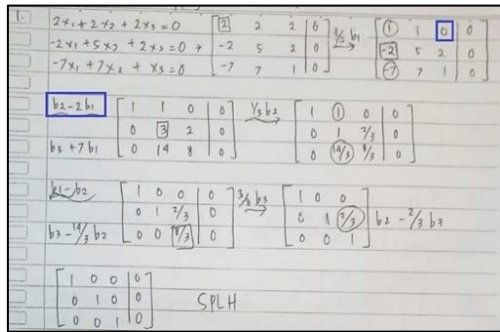 1.
2x₁ + 2x₂ + 2x₃ = 0
-2x₁ + 5x₂ + 2x₃ = 0 →
-7x₁ + 7x₂ + x₃ = 0
2 2 2 | 0
-2 5 2 | 0
-7 7 1 | 0
1/2 b1 →
1 1 0 | 0
-2 5 2 | 0
-7 7 1 | 0
b2 - 2b1
b3 + 7b1
1 1 0 | 0
0 3 2 | 0
0 14 8 | 0
1/3 b2 →
1 1 0 | 0
0 1 2/3 | 0
0 14/3 8/3 | 0
b1 - b2
b3 - 14/3 b2
1 0 0 | 0
0 1 2/3 | 0
0 0 8/3 | 0
3/8 b3 →
1 0 0
0 1 2/3
0 0 1
b2 - 2/3 b3
1 0 0 | 0
0 1 0 | 0
0 0 1 | 0
SPLH